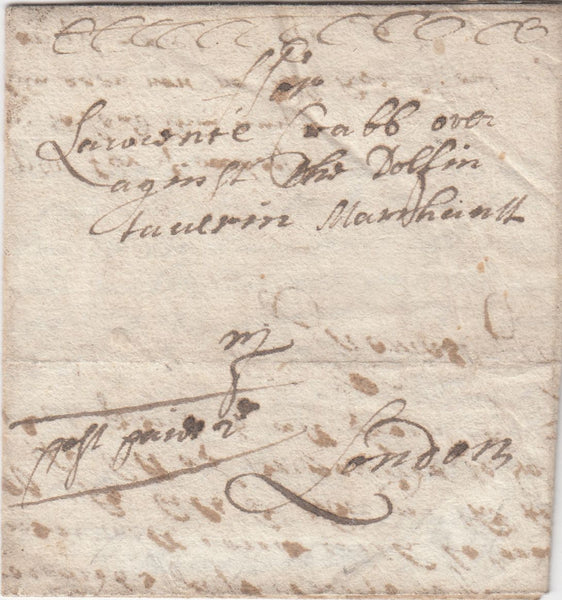 ffor
Lawrence Crabb over
aginst the Dolfin
taverin Marchantt
in
post paide 2d
London